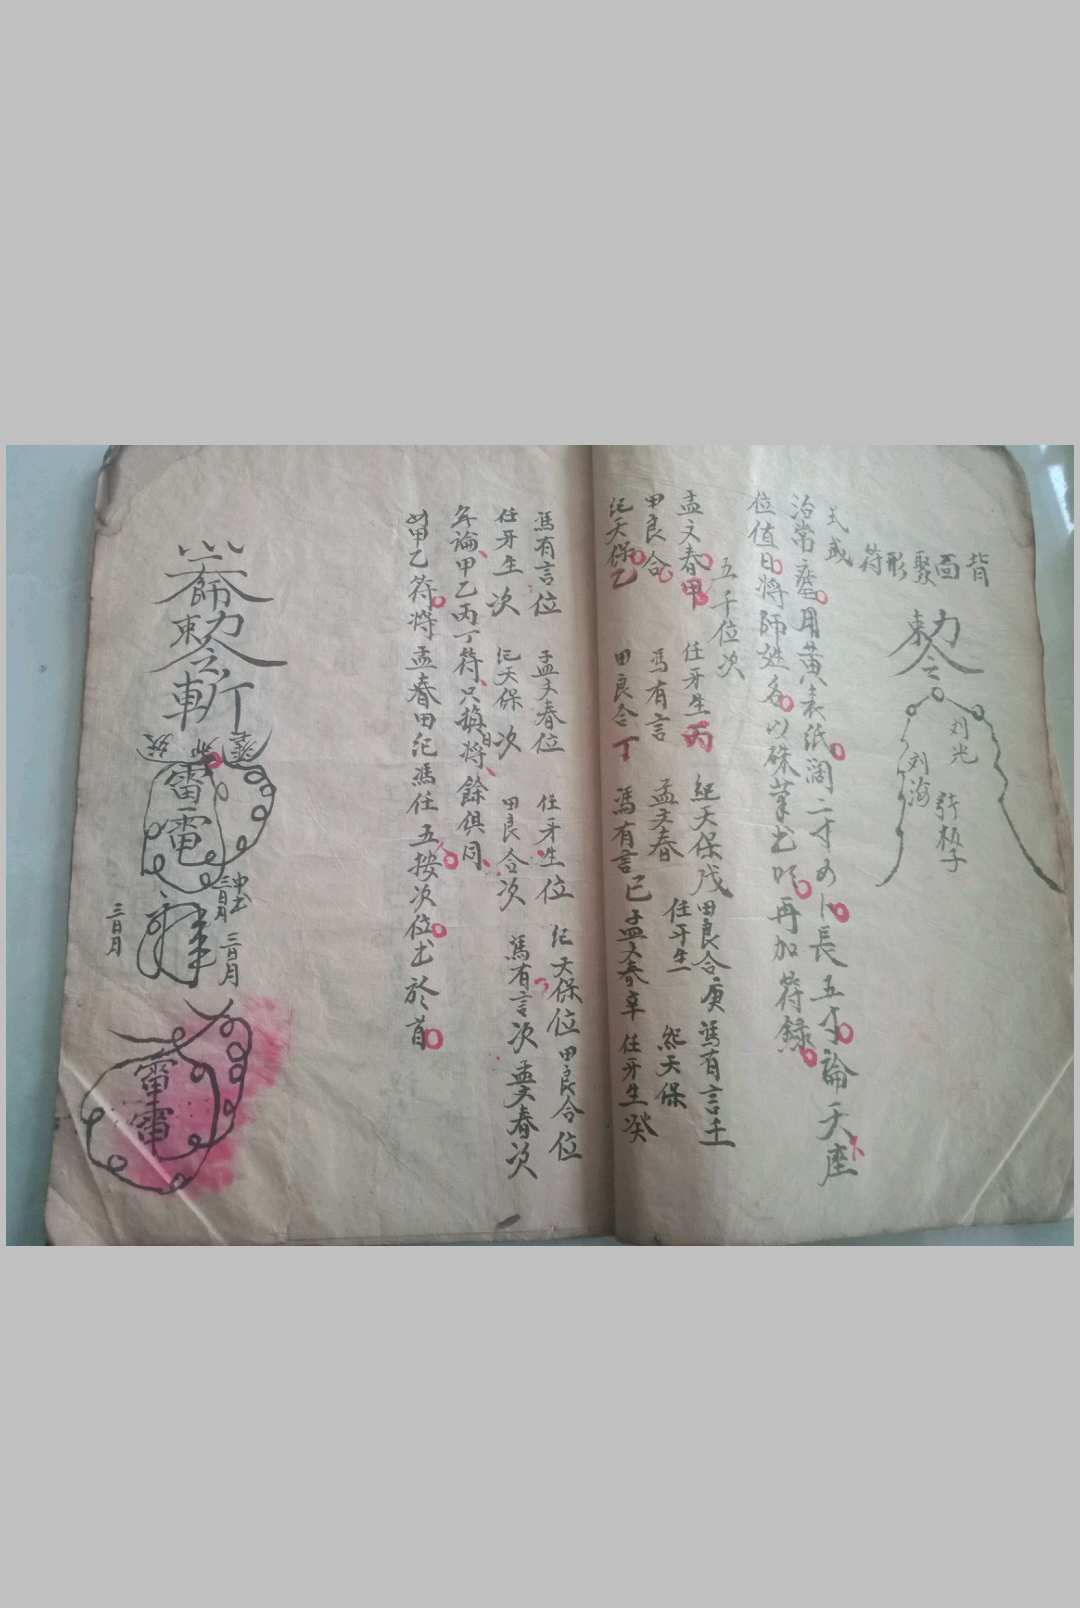 背面聚形符
敕令
刘光
刘海
張板子
式或
治常 用黄表纸阔二寸 長五寸論天座
位值日將師姓名以硃筆书 再加符録
五千位次
孟文春甲 任牙生丙 紀天保戊 田良合庚 馮有言壬
田良合 馮有言 孟文春 任牙生 紀天保
紀天保乙 田良合丁 馮有言己 孟文春辛 任牙生癸
馮有言位 孟文春位 任牙生位 紀天保位 田良合位
任牙生次 紀天保次 田良合次 馮有言次 孟文春次
年論甲乙丙丁符只換日將餘俱同
如甲乙符將孟春田紀馮任五按次位书於首
師
敕令
斬
雷電
三日月
三日月
三日月
雷